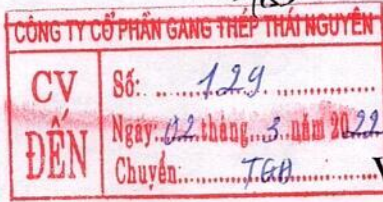 CÔNG TY CỔ PHẦN GANG THÉP THÁI NGUYÊN
CV ĐẾN
Số: 129
Ngày: 02 tháng 3 năm 2022
Chuyển: TGĐ
V